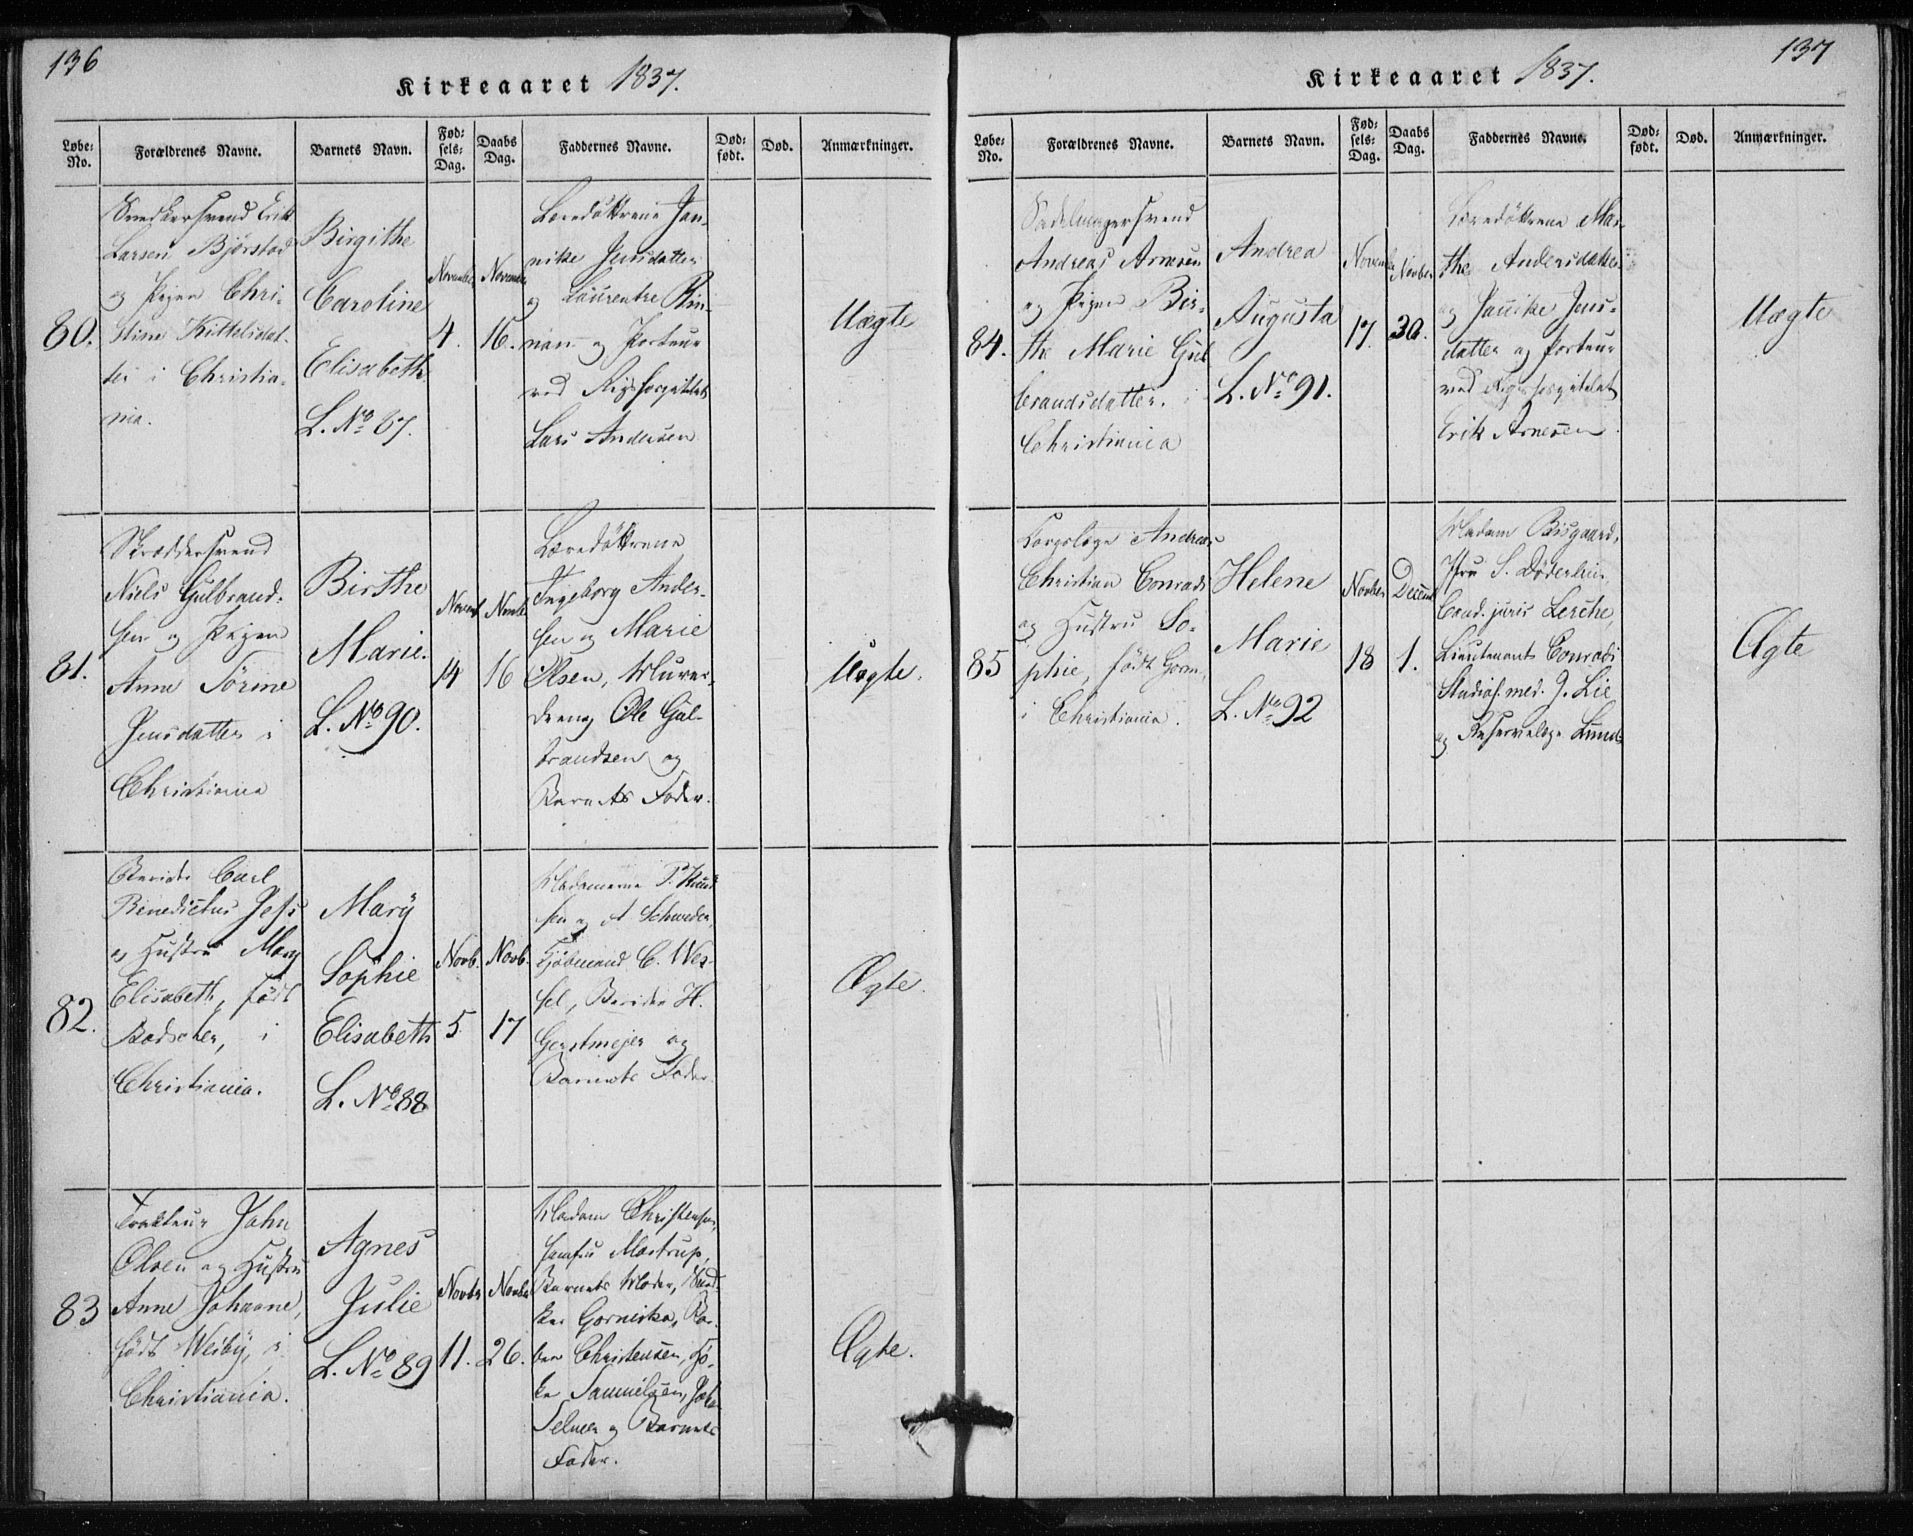 136
Kirkeaaret 1837.
Løbe-
No.
Forældrenes Navne.
Barnets Navn.
Fød-
sels-
Dag.
Daabs
Dag.
Faddernes Navne.
Død-
født.
Død.
Anmærkninger.
80.
Snedkersvend Erik
Larsen Bjørstad
og Pigen Chri-
stine Kittelsdat-
ter i Christia-
nia.
Birgithe
Caroline
Elisabeth
L. No 87.
4.
16.
Læredøttrene Jan-
nike Jensdatter
og Laurentze
og Porteur
ved Rigshospitalet
Lars Andersen
Uægte
81.
Skræddersvend
Niels Gulbrand-
sen og Pigen
Anne Sørine
Jensdatter i
Christiania
Birthe
Marie.
L. No 90.
14
16
Læredøttrene
Ingeborg Ander-
sen og Marie
Olsen, Murer-
dreng Ole Gul-
brandsen og
Barnets Fader.
Uægte.
82.
Berider Carl
Benedictus Jess
og Hustru Mary
Elisabeth, født
i
Christiania.
Mary
Sophie
Elisabeth
L. No 88
Novb.
5.
Novb.
17
Madamerne P. Knud
sen og A Schweder,
Kjøbmand C. Wes-
sel, Berider H.
Gerstmejer og
Barnets Fader.
Ægte.
83
Trakteur John
Olsen og Hustru
Anne Johanne,
født Weiby, i
Christiania.
Agnes
Julie
L. No 89
Novbr
11.
Novbr
26.
Madam Christensen,
Jomfru Mostrup,
Barnets Moder,
Christensen,
Samuelsen,
Selmer og Barnets
Fader.
Ægte.
137
Kirkeaaret 1837.
Løbe-
No.
Forældrenes Navne.
Barnets Navn.
Fød-
sels-
Dag.
Daabs
Dag.
Faddernes Navne.
Død-
født.
Død.
Anmærkninger.
84.
Sadelmagersvend
Andreas Arnesen
og Pigen Bir-
the Marie Gul
brandsdatter. i
Christiania
Andrea
Augusta
L. No 91.
17.
Novbr
30.
Læredøttrene Mar-
the Andersdatter
og Jannike Jens-
datter og Porteur
ved Rigshospitalet
Erik Arnesen.
Uægte
85
Korpslæge Andreas
Christian Conradi
og Hustru So-
phie, født Gorm,
i Christiania.
Helene
Marie
L. No 92
Novber
18
1.
Madam Bisgaard,
Jfru S. Døderlein,
Cand. juris Lerche,
Lieutenant Conradi
Studios. med. J. Lie
og Reservelæge Lund
Ægte